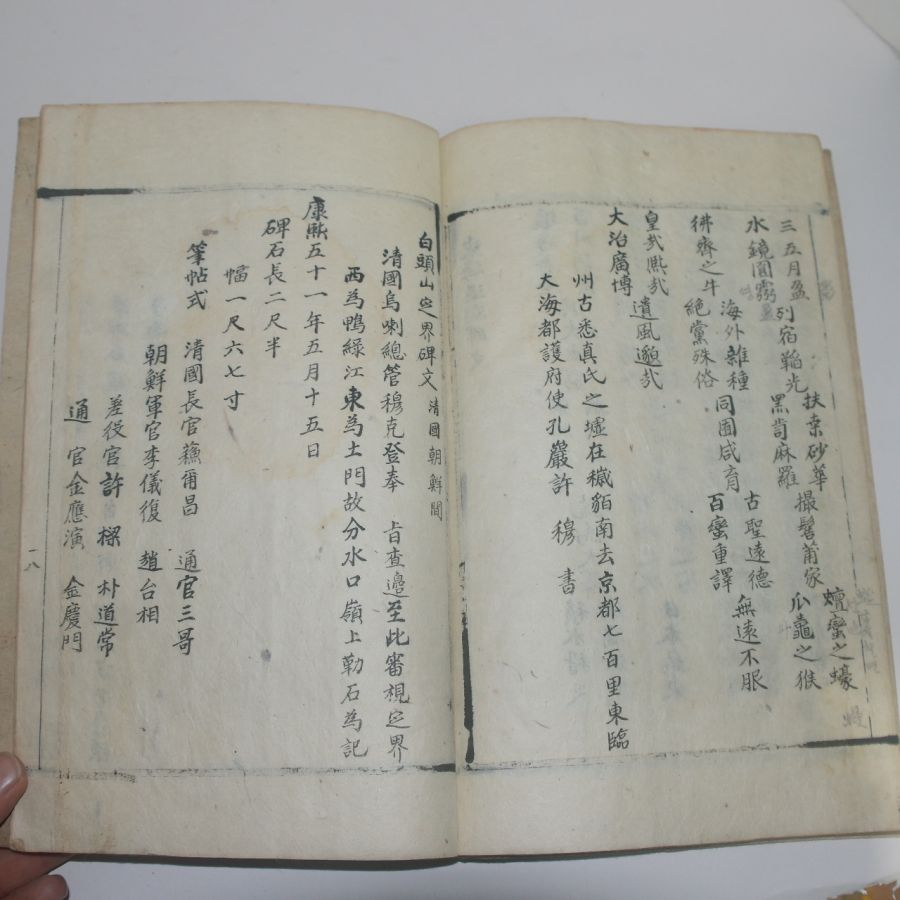 三五月盈
水鏡圓霛
列宿韜光
扶桒砂華
黑䓟麻羅
撮髻莆家
蟺蠻之蠔
瓜鼃之猴
彿齊之牛
海外雜種
絶黨殊俗
同囿咸育
古聖遠德
百蠻重譯
無遠不服
皇哉熙哉
大治廣博
遺風邈哉
州古悉真氏之墟在穢貊南去京都七百里東臨
大海都護府使孔巖許 穆 書
白頭山定界碑文 清國朝鮮間
清國烏喇總管穆克登奉 旨查邊至此審視定界
西為鴨綠江東為土門故分水口嶺上勒石為記
康熙五十一年五月十五日
碑石長二尺半
幅一尺六七寸
筆帖式 清國長官蘓爾昌 通官三哥
朝鮮軍官李儀復 趙台相
差役官許 樑 朴道常
通 官金應演 金慶門
一八